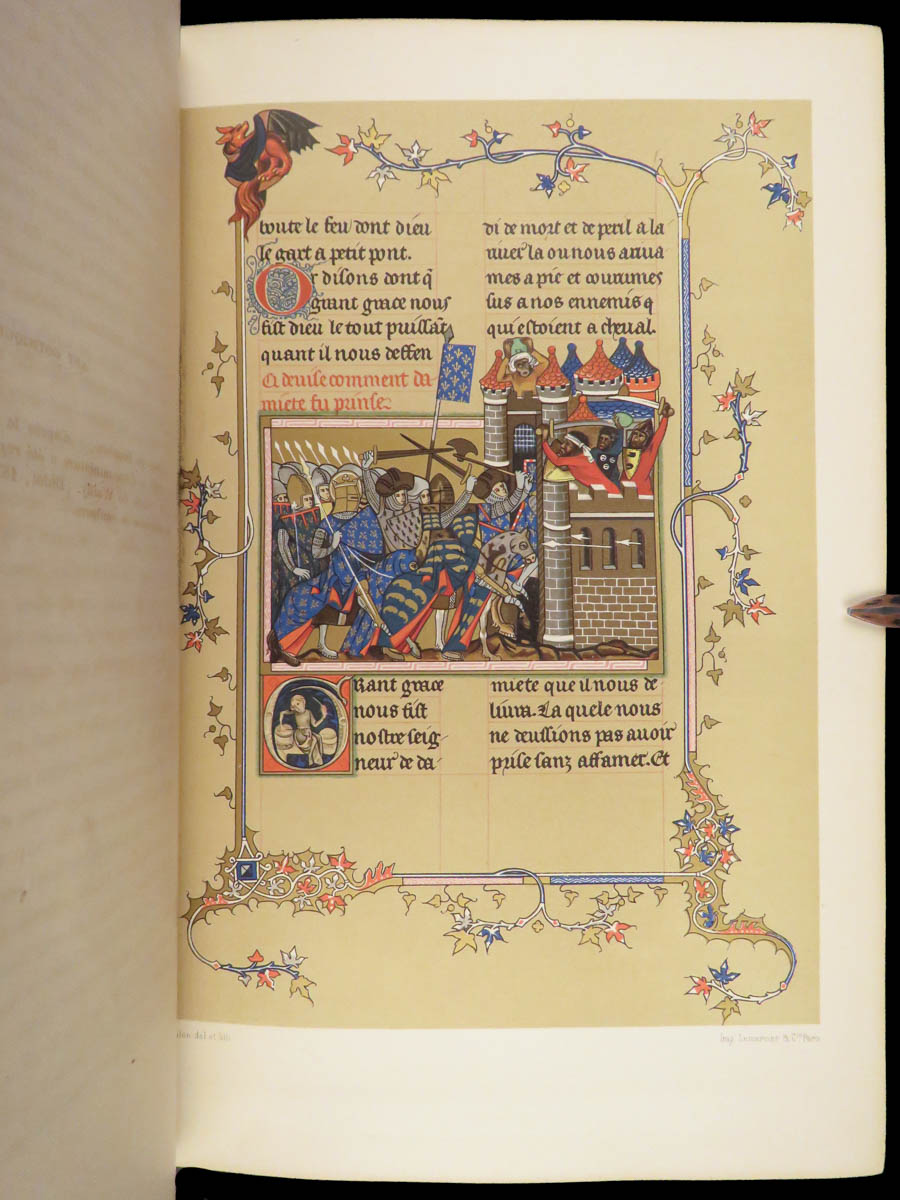 toute le feu dont dieu
le gart a petit pont.
Or disons dont q̄
grant grace nous
fist dieu le tout puissāt
quant il nous deffen
Ci devise comment da
miete fu prinse
di de mort et de peril a la
river la ou nous arrua
mes a pie et courumes
sus a nos ennemis q
qui estoient a cheval.
Grant grace
nous fist
nostre seig-
neur de da
miete que il nous de
livra. La quele nous
ne deussions pas avoir
prise sanz affamer. Et
del et lith
Imp. Lemercier & Cie Paris